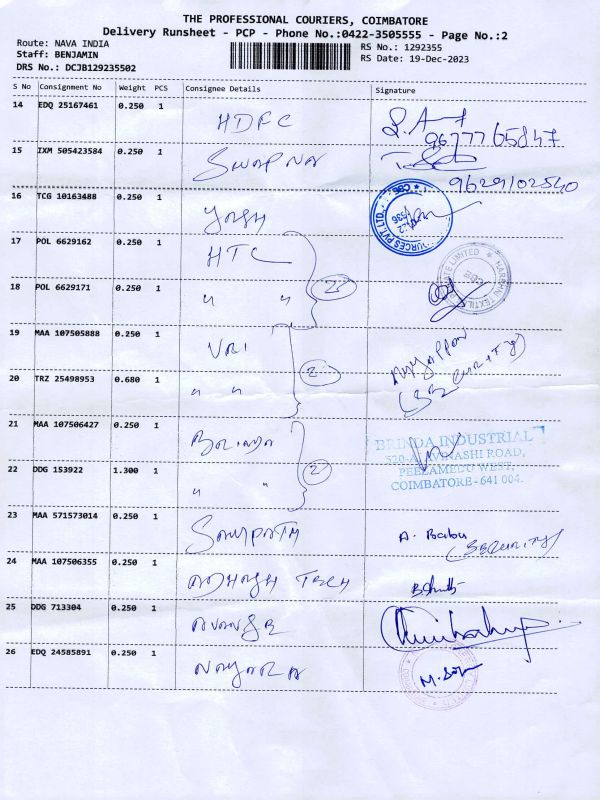 THE PROFESSIONAL COURIERS, COIMBATORE
Delivery Runsheet - PCP - Phone No.:0422-3505555 - Page No.:2
Route: NAVA INDIA
Staff: BENJAMIN
DRS No.: DCJB129235502
RS No.: 1292355
RS Date: 19-Dec-2023
S No Consignment No Weight PCS Consignee Details Signature
14 EDQ 25167461 0.250 1 HDFC
9677765847
15 IXM 505423584 0.250 1 SWAPNA
9629102540
16 TCG 10163488 0.250 1 YASH
17 POL 6629162 0.250 1 HTC
18 POL 6629171 0.250 1 " " 2
19 MAA 107505888 0.250 1
20 TRZ 25498953 0.680 1 " " 2
21 MAA 107506427 0.250 1
BRINDA INDUSTRIAL
520-A, AVINASHI ROAD,
PEELAMEDU WEST,
COIMBATORE-641 004.
22 DDG 153922 1.300 1 " " 2
23 MAA 571573014 0.250 1 A. Babu
24 MAA 107506355 0.250 1 TECH
25 DDG 713304 0.250 1
26 EDQ 24585891 0.250 1 NAYARA